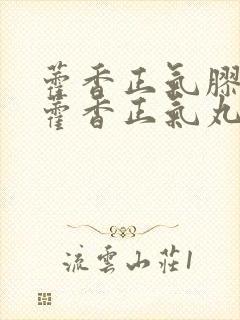 藿香正氣膠
藿香正氣丸
流雲山莊1